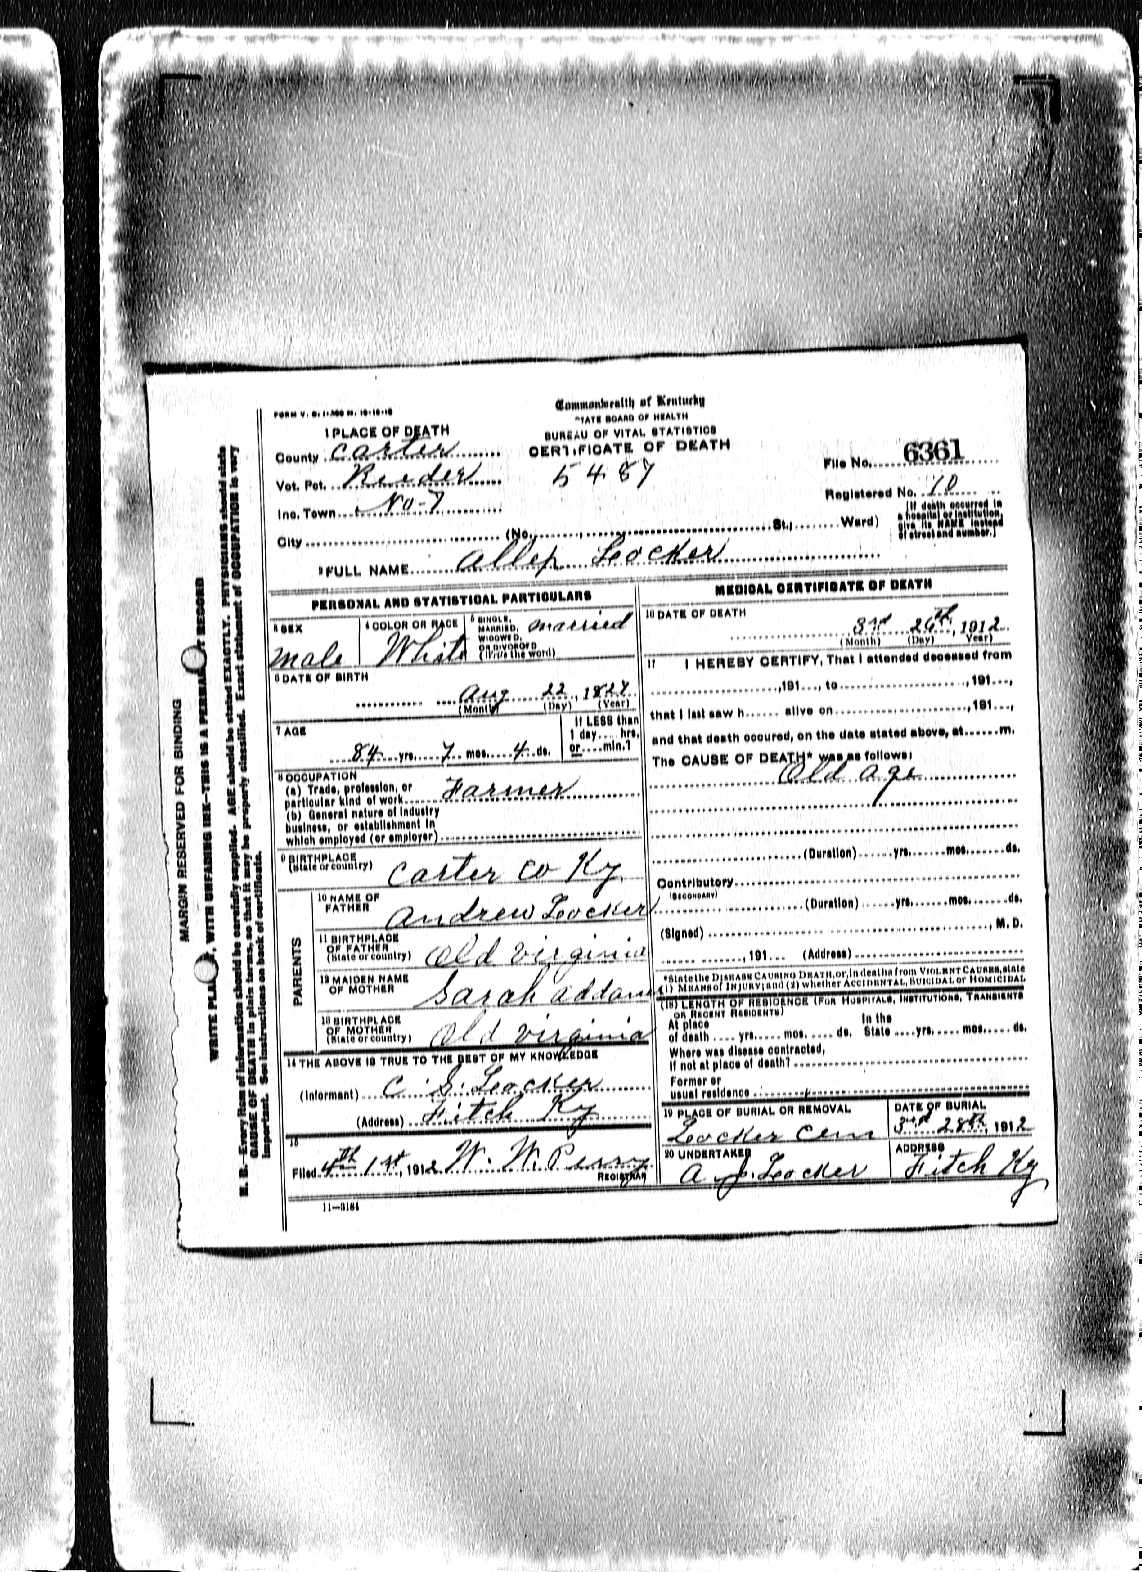 FORM V. S. 1-200 M. 10-10-10
Commonwealth of Kentucky
STATE BOARD OF HEALTH
BUREAU OF VITAL STATISTICS
CERTIFICATE OF DEATH
5487
File No. 6361
Registered No. 10
(If death occurred in a hospital or institution, give its NAME instead of street and number.)
1 PLACE OF DEATH
County Carter
Vot. Pct. Reeder
Inc. Town No-7
City (No. St.; Ward)
2 FULL NAME Allen Locker
PERSONAL AND STATISTICAL PARTICULARS
3 SEX
male
4 COLOR OR RACE
White
5 SINGLE, MARRIED, WIDOWED, OR DIVORCED (Write the word)
married
6 DATE OF BIRTH
Aug 22, 1827
(Month) (Day) (Year)
7 AGE
84 yrs. 7 mos. 4 ds.
If LESS than 1 day.... hrs. or....min.?
8 OCCUPATION
(a) Trade, profession, or particular kind of work Farmer
(b) General nature of industry business, or establishment in which employed (or employer)
9 BIRTHPLACE (State or country) Carter Co Ky
PARENTS
10 NAME OF FATHER Andrew Locker
11 BIRTHPLACE OF FATHER (State or country) Old Virginia
12 MAIDEN NAME OF MOTHER Sarah addams
13 BIRTHPLACE OF MOTHER (State or country) Old Virginia
14 THE ABOVE IS TRUE TO THE BEST OF MY KNOWLEDGE
(Informant) C. S. Locker
(Address) Fitch Ky
15
Filed 4th 1st, 1912 W. W. Perry
REGISTRAR
11—3184
MEDICAL CERTIFICATE OF DEATH
16 DATE OF DEATH
3rd 26th, 1912
(Month) (Day) (Year)
17 I HEREBY CERTIFY, That I attended deceased from
,191..., to ,191...,
that I last saw h...... alive on ,191...,
and that death occured, on the date stated above, at......m.
The CAUSE OF DEATH* was as follows:
Old age
(Duration) yrs. mos. ds.
Contributory
(SECONDARY)
(Duration) yrs. mos. ds.
(Signed) , M. D.
, 191... (Address)
*State the DISEASE CAUSING DEATH, or, in deaths from VIOLENT CAUSES, state
(1) MEANS of INJURY; and (2) whether ACCIDENTAL, SUICIDAL or HOMICIDAL
(18) LENGTH OF RESIDENCE (FOR HOSPITALS, INSTITUTIONS, TRANSIENTS
OR RECENT RESIDENTS)
At place of death .... yrs. mos. ds. In the State .... yrs. mos. ds.
Where was disease contracted,
If not at place of death?
Former or
usual residence
19 PLACE OF BURIAL OR REMOVAL
Locker Cem
DATE OF BURIAL
3rd 28th 1912
20 UNDERTAKER
A. J. Locker
ADDRESS
Fitch Ky
MARGIN RESERVED FOR BINDING
WRITE PLAINLY, WITH UNFADING INK—THIS IS A PERMANENT RECORD
N. B.—Every item of information should be carefully supplied. AGE should be stated EXACTLY. PHYSICIANS should state
CAUSE OF DEATH in plain terms, so that it may be properly classified. Exact statement of OCCUPATION is very
important. See instructions on back of certificate.